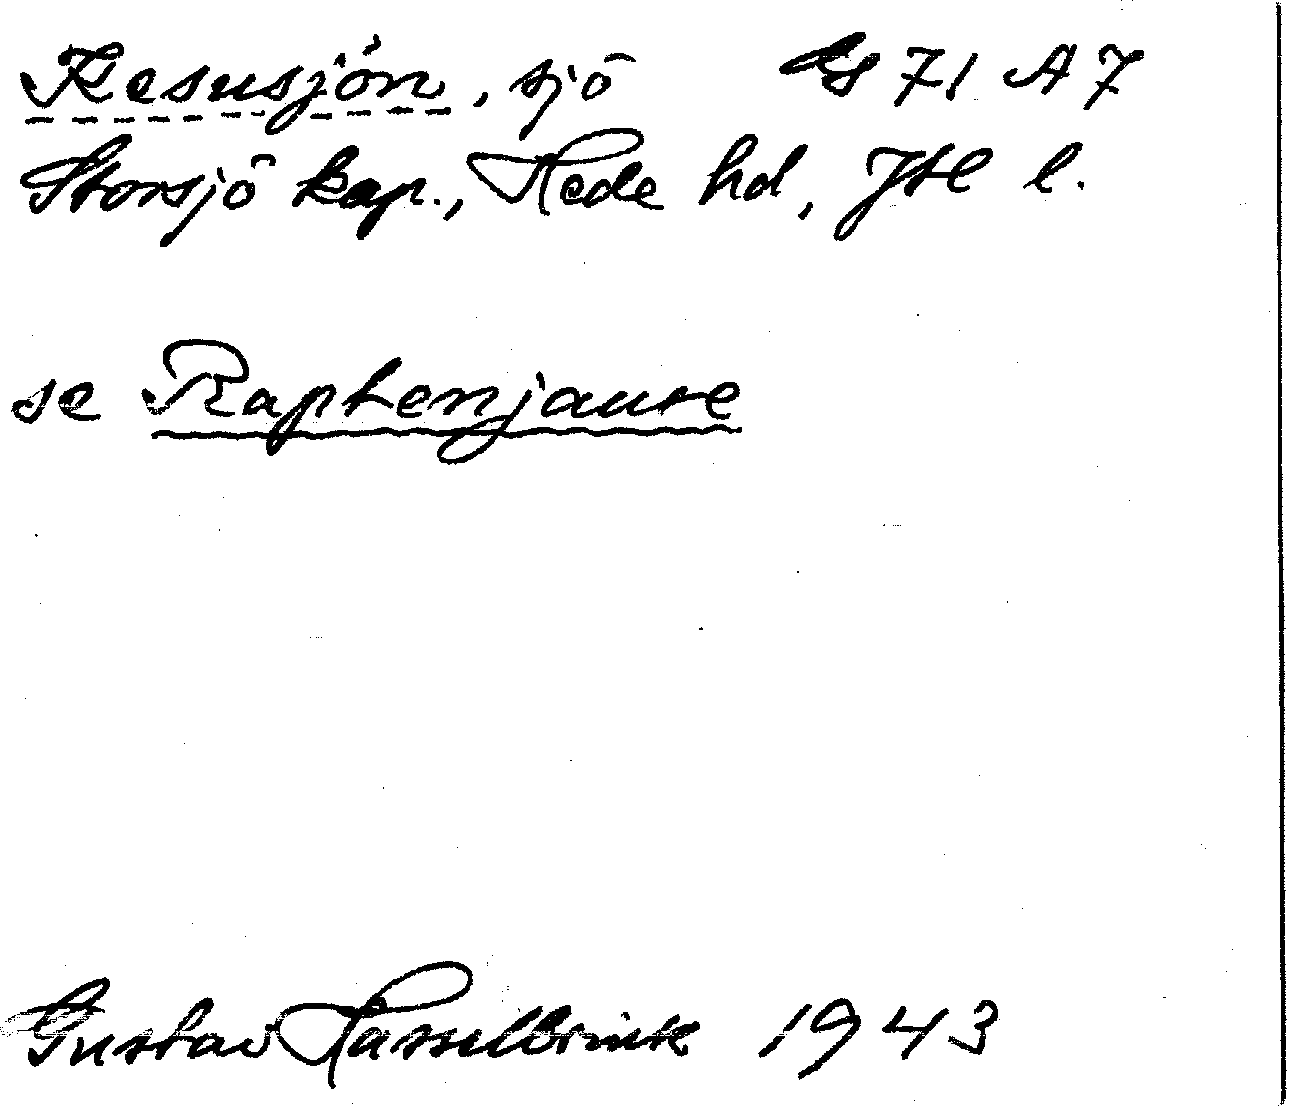 Kesusjön, sjö GS 71 A 7
Storsjö kap., Hede hd, Jtl l.
se Raptenjaure
Gustav Hasselbrink 1943